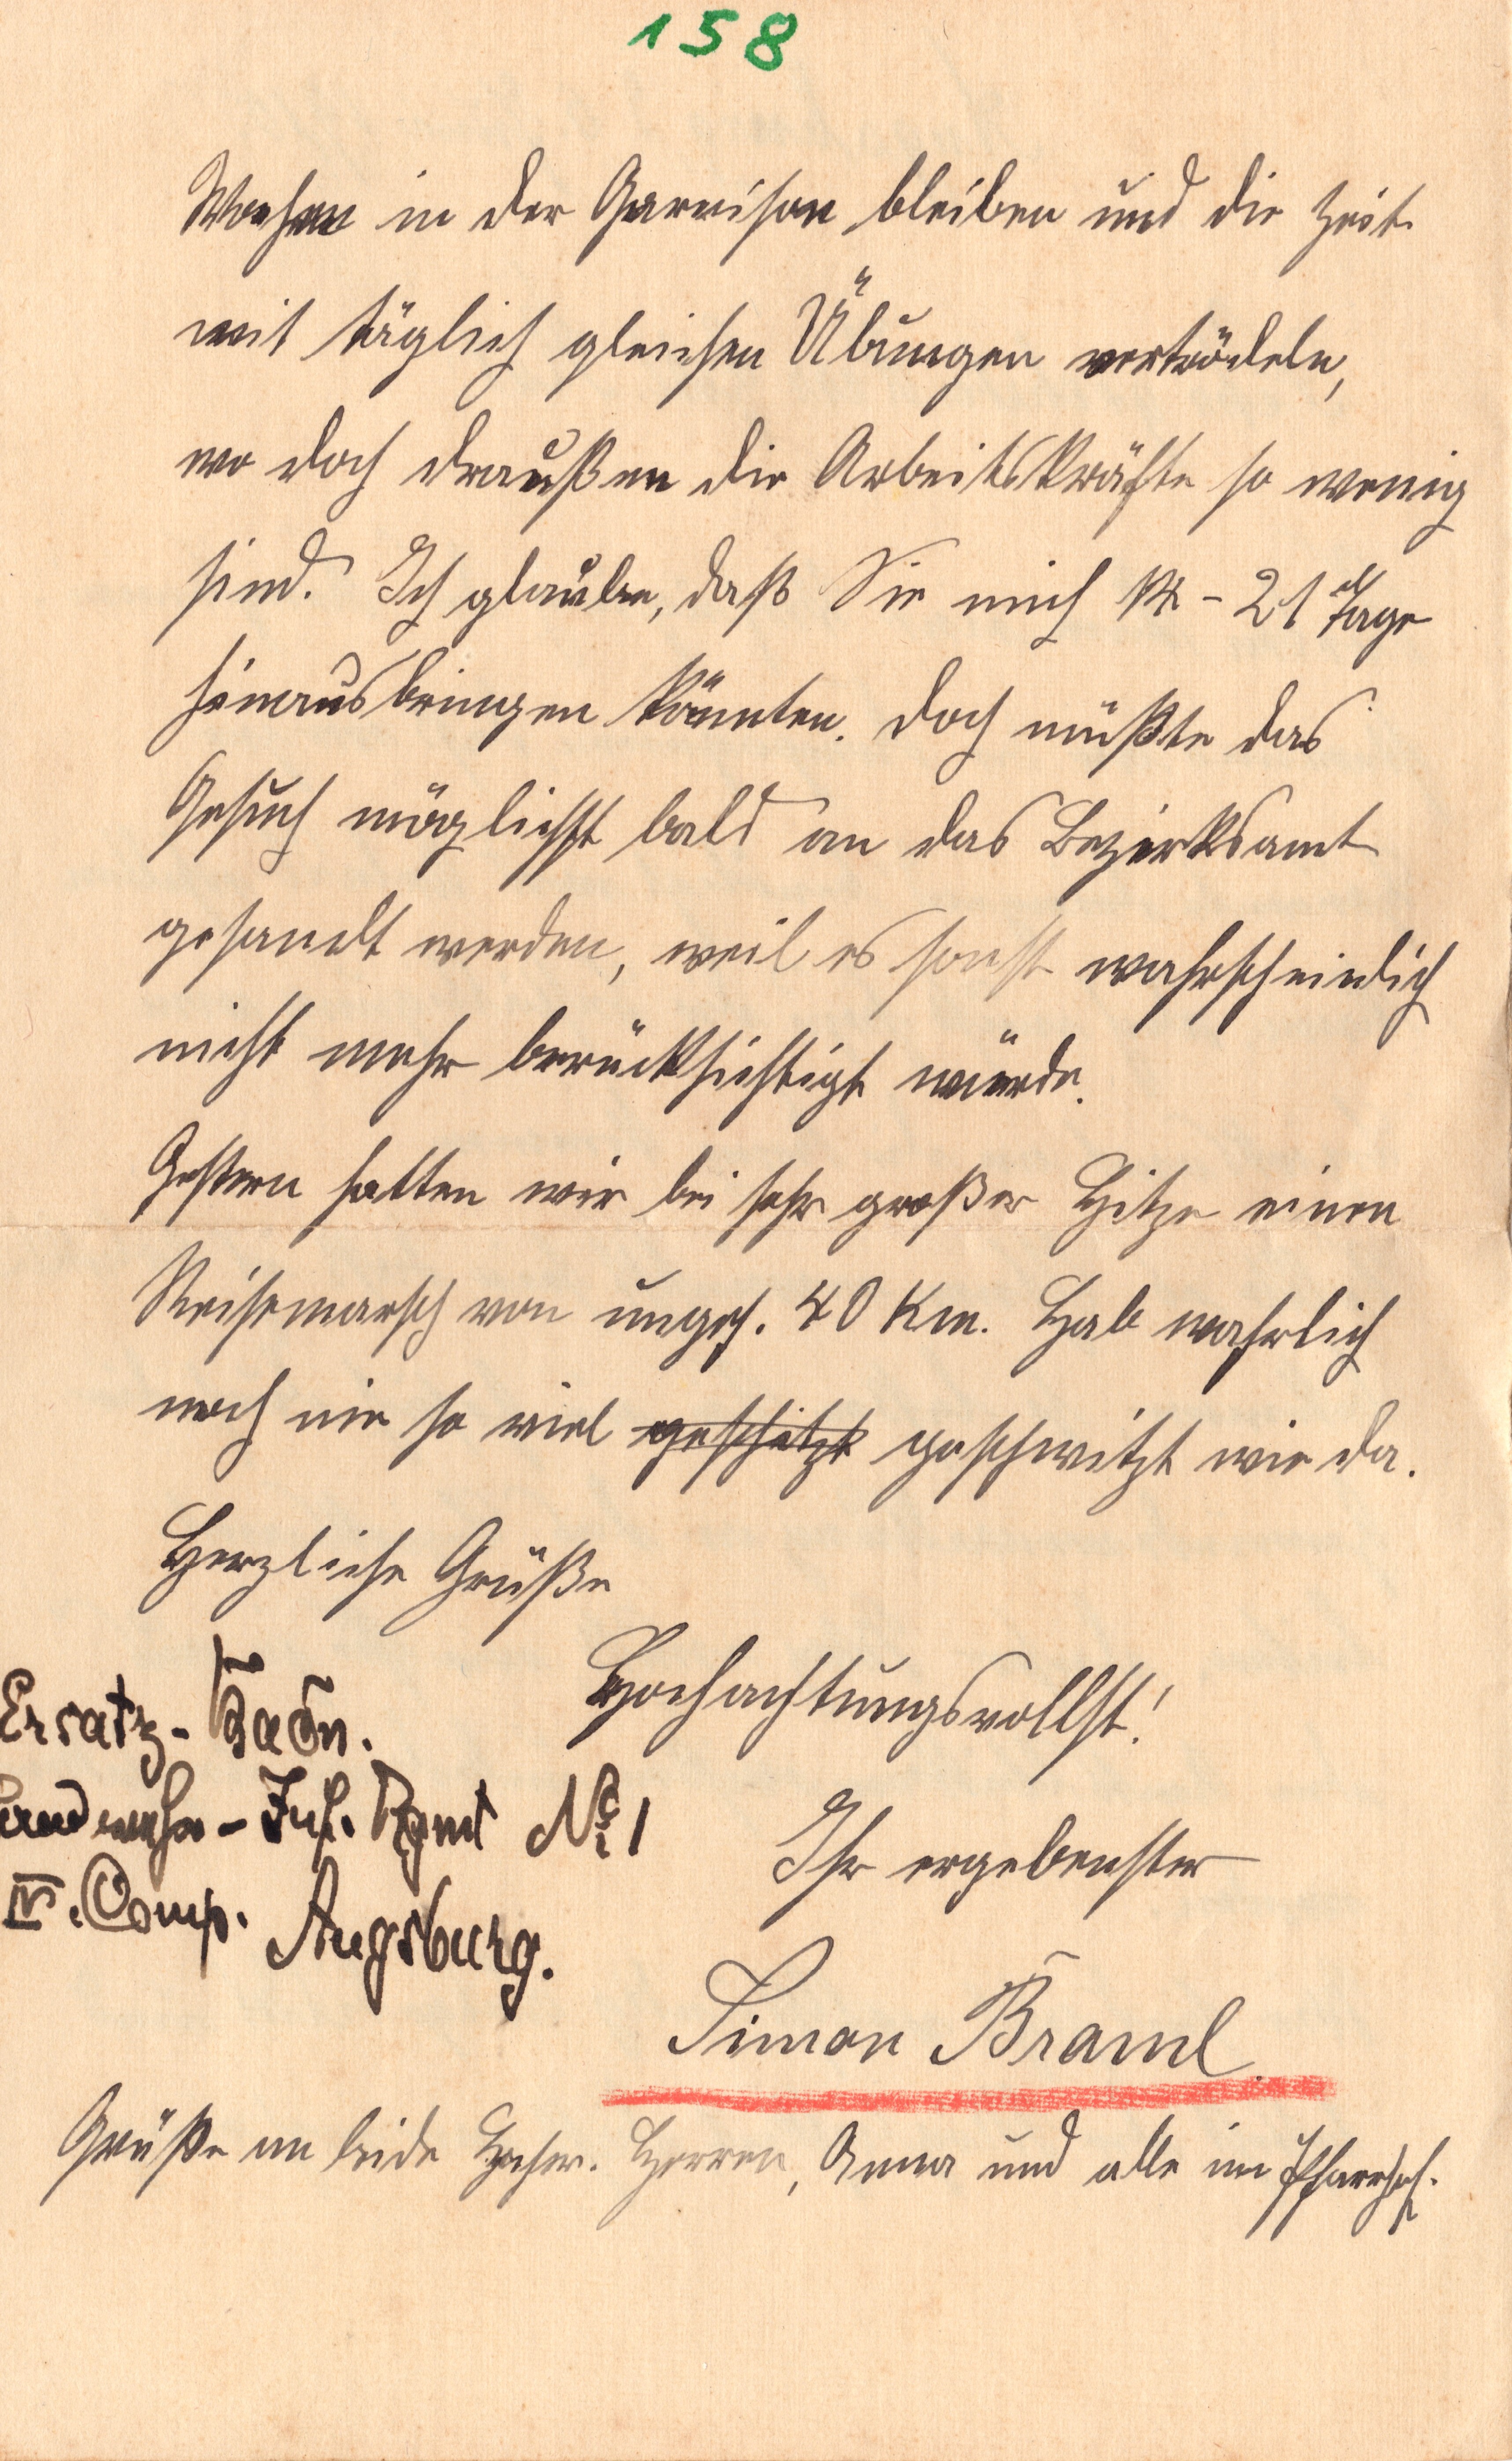 158
Wochen in der Garnison bleiben und die Zeit
mit täglich gleichen Übungen vertrödeln,
wo doch draußen die Arbeitskräfte so wenig
sind. Ich glaube, daß Sie mich 14 - 21 Tage
hinausbringen könnten. Doch müßte das
Gesuch möglichst bald an das Bezirksamt
gesandt werden, weil es sonst wahrscheinlich
nicht mehr berücksichtigt würde.
Gestern hatten wir bei sehr großer Hitze einen
Reisemarsch von ungef. 40 Km. Hab wahrlich
noch nie so viel geschitzt geschwitzt wie da.
Herzliche Grüße
Hochachtungsvollst!
Ihr ergebenster
Simon Braml.
Ersatz-Batln.
Landwehr-Inf. Rgmt No 1
IV. Comp. Augsburg.
Grüße an beide Hochw. Herren, Anna und alle im Pfarrhof.